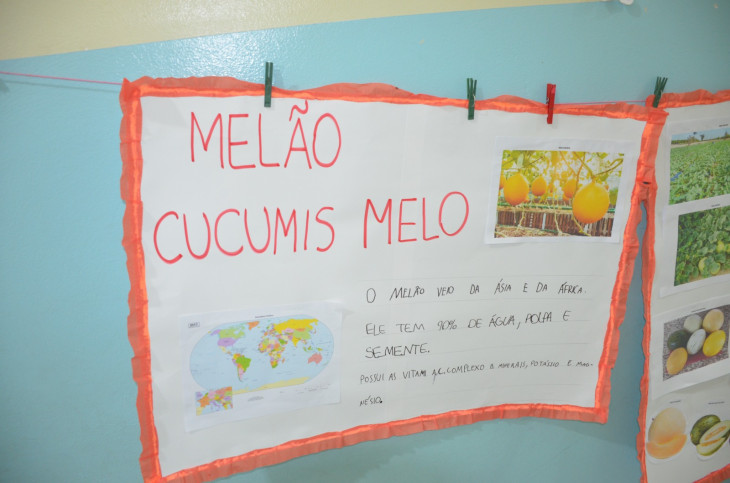 MELÃO
CUCUMIS MELO
O MELÃO VEIO DA ÁSIA E DA ÁFRICA.
ELE TEM 90% DE ÁGUA, POLPA E
SEMENTE.
POSSUI AS VITAM COMPLEXO B MINERAIS, POTÁSSIO E MAG-
NÉSIO.